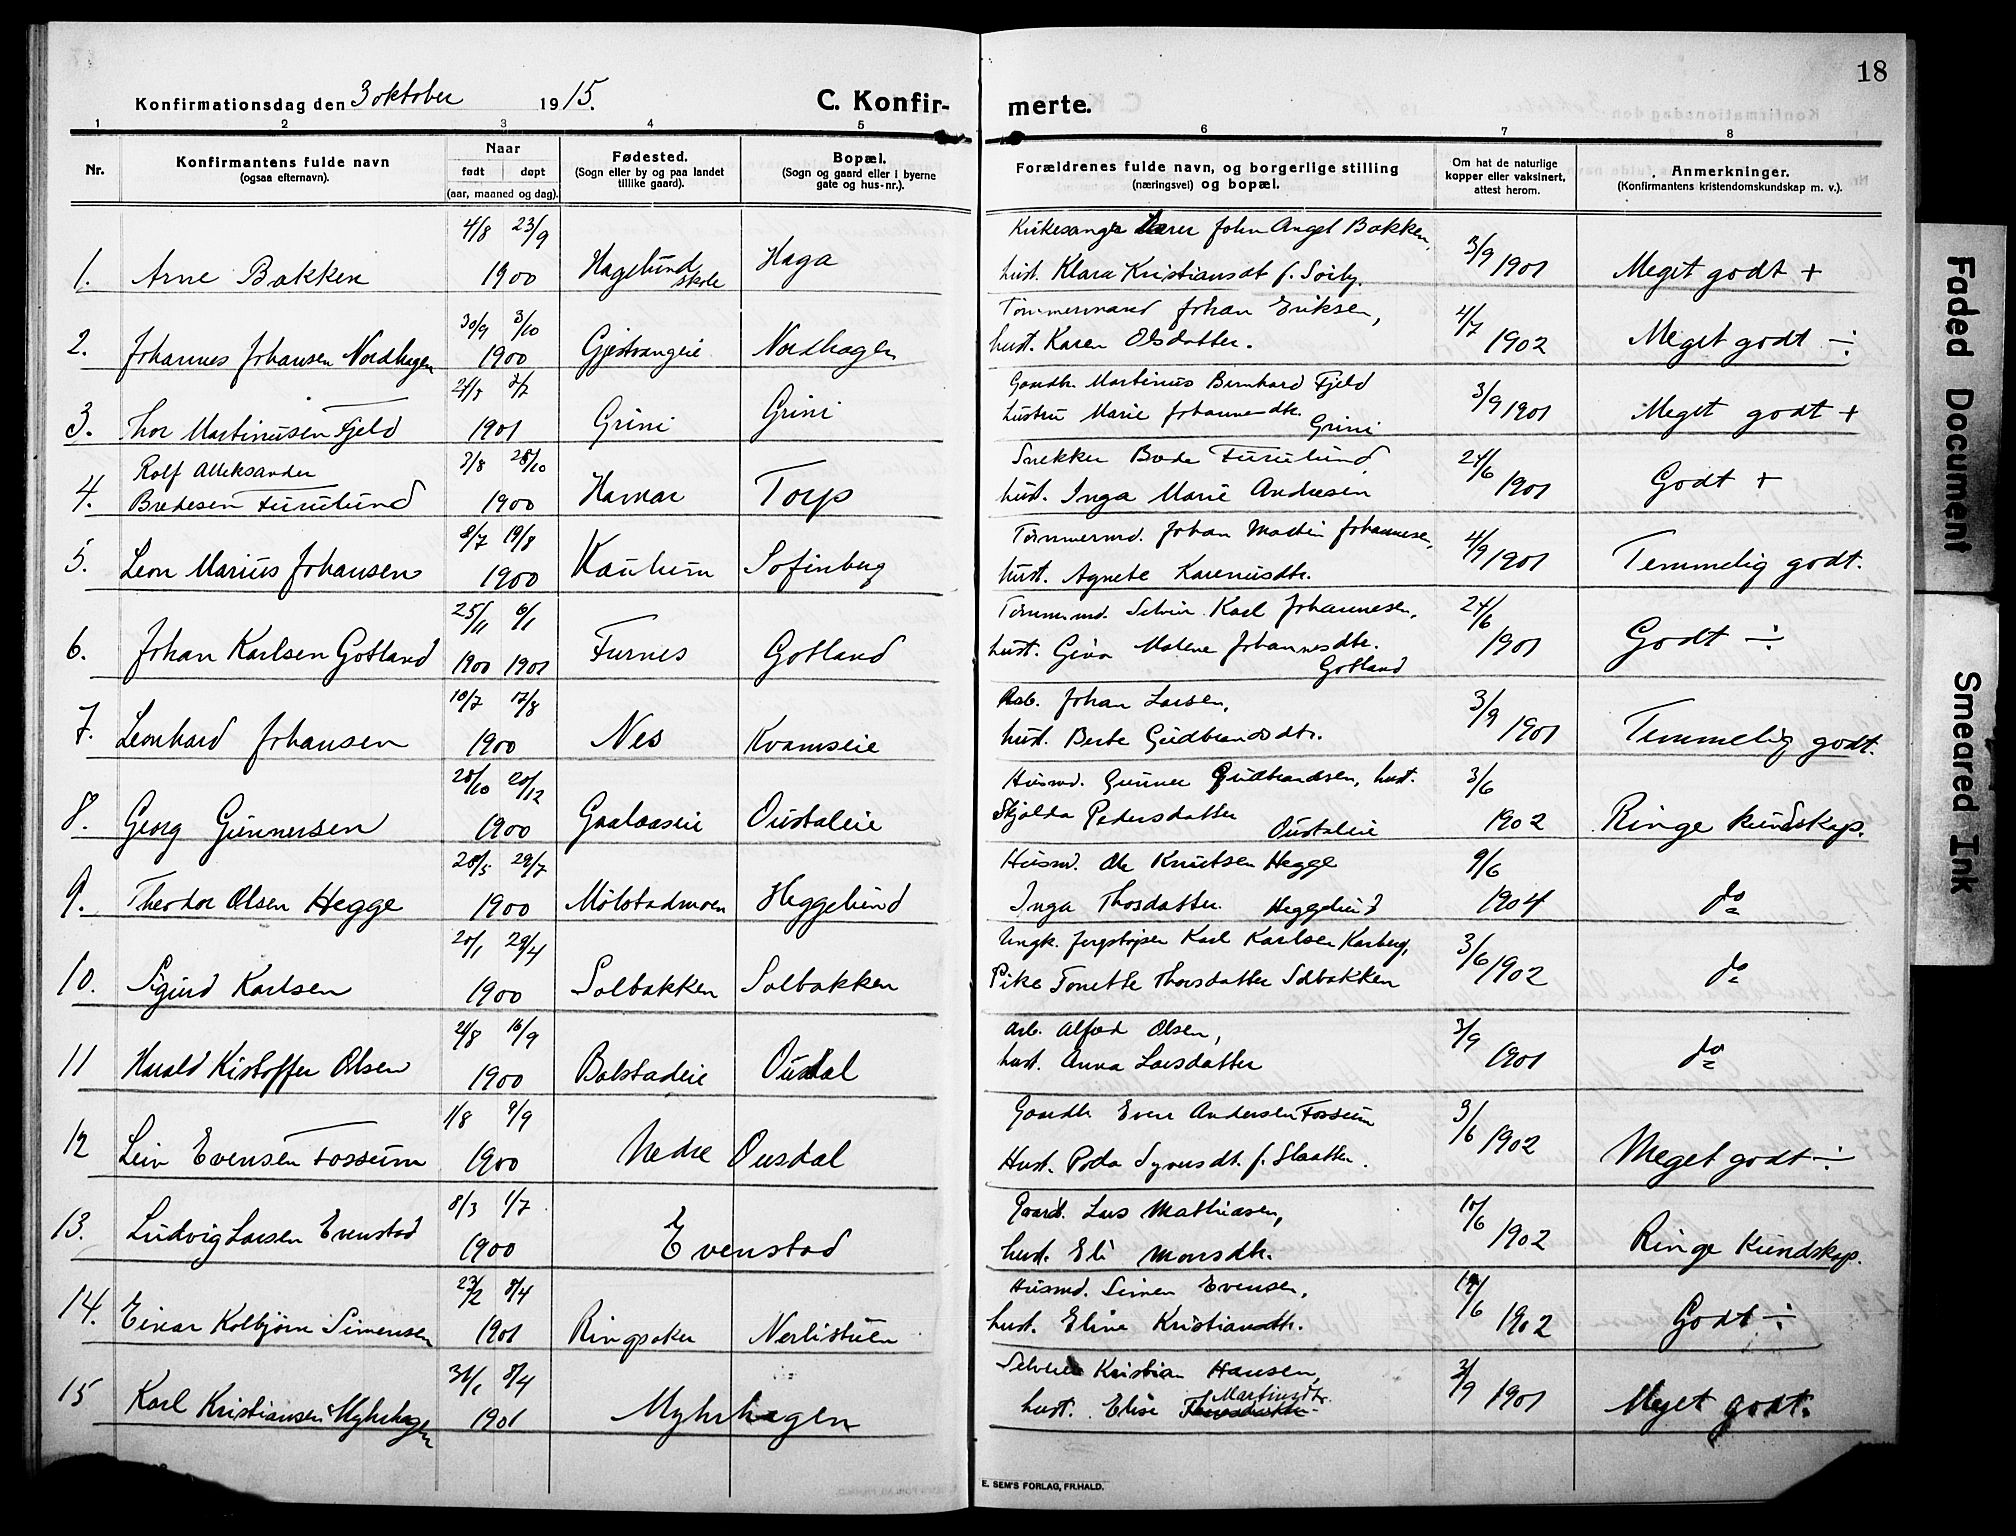 18
Konfirmationsdag den 3 oktober 1915. C. Konfirmerte.
1 2 3 4 5 6 7 8
Nr. Konfirmantens fulde navn (ogsaa efternavn). Naar født døpt (aar, maaned og dag). Fødested. (Sogn eller by og paa landet tillike gaard). Bopæl. (Sogn og gaard eller i byerne gate og hus-nr.). Forældrenes fulde navn, og borgerlige stilling (næringsvei) og bopæl. Om hat de naturlige kopper eller vaksinert, attest herom. Anmerkninger. (Konfirmantens kristendomskundskap m. v.).
4/8 23/9 Kirkesanger Lærer John Angel Bakken,
1. Arne Bakken 1900 Hagelund skole Haga hust. Klara Kristiansdt f. Sörby. 3/9 1901 Meget godt +
30/9 3/10 Tömmermand Johan Eriksen,
2. Johannes Johansen Nordhagen 1900 Gjestvangeie Nordhagen hust. Karen Olsdatter. 4/7 1902 Meget godt ÷
Gaardbr. Martinus Bernhard Fjeld
3. Thor Martinusen Fjeld 1901 Grini Grini hustru Marie Johannesdtr. Grini 3/9 1901 Meget godt +
Rolf Alleksander 28/10 Snekker Brede Furulund
4. Bredesen Furulund 1900 Hamar Torp hust. Inga Marie Andresen 24/6 1901 Godt +
8/7 19/8 Tömmermd. Johan Martin Johannesen,
5. Leon Marius Johansen 1900 Kauhem Sofienberg hust. Agnete Karenusdtr. 4/9 1901 Temmelig godt.
25/11 6/1 Tömmermd. Selveier Karl Johannesen,
6. Johan Karlsen Gotland 1900 1901 Furnes Gotland hust. Gina Malene Johannesdtr. Gotland 24/6 1901 Godt ÷
10/7 17/8 Arb. Johan Larsen,
7. Leonhard Johansen 1900 Nes Kvamseie hust. Berte Gudbrandsdtr. 3/9 1901 Temmelig godt.
20/10 20/12 Husmd. Gunner Gudbrandsen, hust.
8. Georg Gunnersen 1900 Gaalaaseie Oustaleie Skjolda Pedersdatter Oustaleie 3/6 1902 Ringe kundskap.
28/5 29/7 Husmd. Ole Knutsen Hegge
9. Theodor Olsen Hegge 1900 Mölstadmoen Heggelund Inga Thosdatter Heggelund 9/6 1904 do
20/1 29/4 Ungk. Karl Karlsen Karberg,
10. Sigurd Karlsen 1900 Solbakken Solbakken Pike Tonette Thorsdatter Solbakken 3/6 1902 do
21/8 16/9 Arb. Alfred Olsen,
11 Harald Kistoffer Olsen 1900 Bolstadeie Ousdal hust. Anna Larsdatter 3/9 1901 do
1/8 9/9 Gaardbr. Even Andersen Fossum
12 Leiv Evensen Fossum 1900 Nedre Ousdal Hust. Syversdt. f. Slaatten. 3/6 1902 Meget godt ÷
8/3 1/7 Gaardb. Lars Mathiasen,
13. Ludvig Larsen Evenstad 1900 Evenstad hust. Eli Monsdtr. 10/6 1902 Ringe Kundskap.
23/2 8/4 Husmd. Simen Evensen,
14. Einar Kolbjörn Simensen 1901 Ringsaker Nerlistuen hust. Eline Kristiansdtr. 1902 Godt ÷
31/1 8/4 Selveier Kristian Hansen,
15 Karl Kristiansen Myhrhagen 1901 Myhrhagen hust. Elise Martinsdtr. 1901 Meget godt.
E. SEM'S FORLAG, FR.HALD.
Faded Document
Smeared Ink